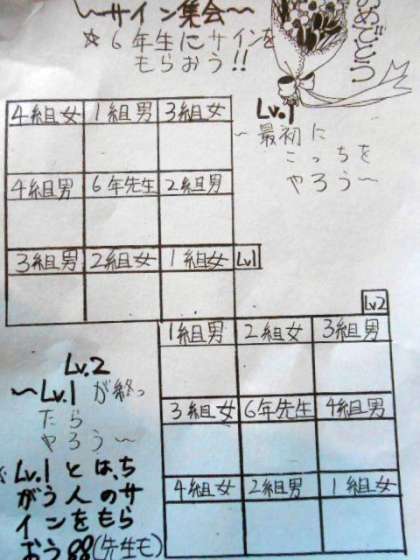 〜サイン集会〜
☆6年生にサインを
もらおう!!
おめでとう
4組女 1組男 3組女
4組男 6年先生 2組男
3組男 2組女 1組女
Lv1
Lv.1
〜最初に
こっちを
やろう〜
Lv2
1組男 2組女 3組男
3組女 6年先生 4組男
4組女 2組男 1組女
Lv.2
〜Lv.1が終っ
たら
やろう〜
※Lv.1とは、ち
がう人のサ
インをもら
おう!!(先生も)